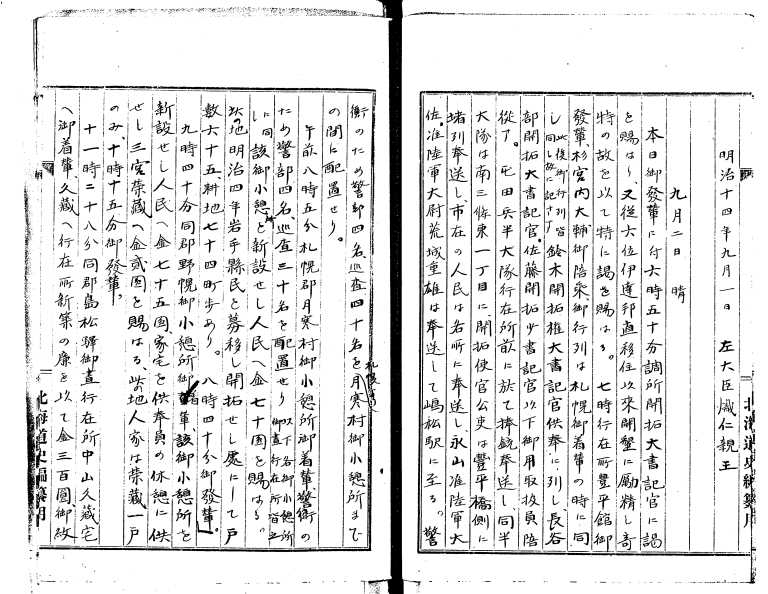 明治十四年九月一日　左大臣熾仁親王
九月二日　晴
本日御発輦に付六時五十分調所開拓大書記官に謁
を賜はり、又従六位伊達邦直移住以来開墾に励精し奇
特の故を以て特に謁を賜はる。七時行在所豊平館御
発輦、杉宮内大輔御陪乗、御行列は札幌御着輦の時に同
し此後御行列皆同し故に記さす鈴木開拓権大書記官供奉に列し、長谷
部開拓大書記官、佐藤開拓少書記官以下御用取扱員陪
従す。屯田兵半大隊行在所前に於て捧銃奉送し、同半
大隊は南三條東一丁目に、開拓使官公吏は豊平橋側に
堵列奉送し、市在の人民は各所に奉送し、永山准陸軍大
佐、准陸軍大尉荒城重雄は奉送して嶋松駅に至る。警
衛のため警部四名、巡査四十名を月寒村御小憩所まで
の間に配置せり。
午前八時五分札幌郡月寒村御小憩所御着輦、警衛の
ため警部四名巡査三十名を配置せり以下各御小憩所御昼行在所皆之
に同し該御小憩所を新設せし人民へ金七十円を賜はる。
此地明治四年岩手縣民を募移し開拓せし處にして戸
数六十五、耕地七十四町歩あり。八時四十分御発輦。
九時四十分同郡野幌御小憩所御着輦、該御小憩所を
新設せし人民へ金七十五円、家宅を供奉員の休憩に供
せし三宮栄蔵へ金弐円を賜はる、此地人家は栄蔵一戸
のみ、十時十五分御発輦。
十一時二十八分同郡島松驛御昼行在所中山久蔵宅
へ御着輦、久蔵へ行在所新築の廉を以て金三百圓、御紋
北海道史編纂用
北海道史編纂用